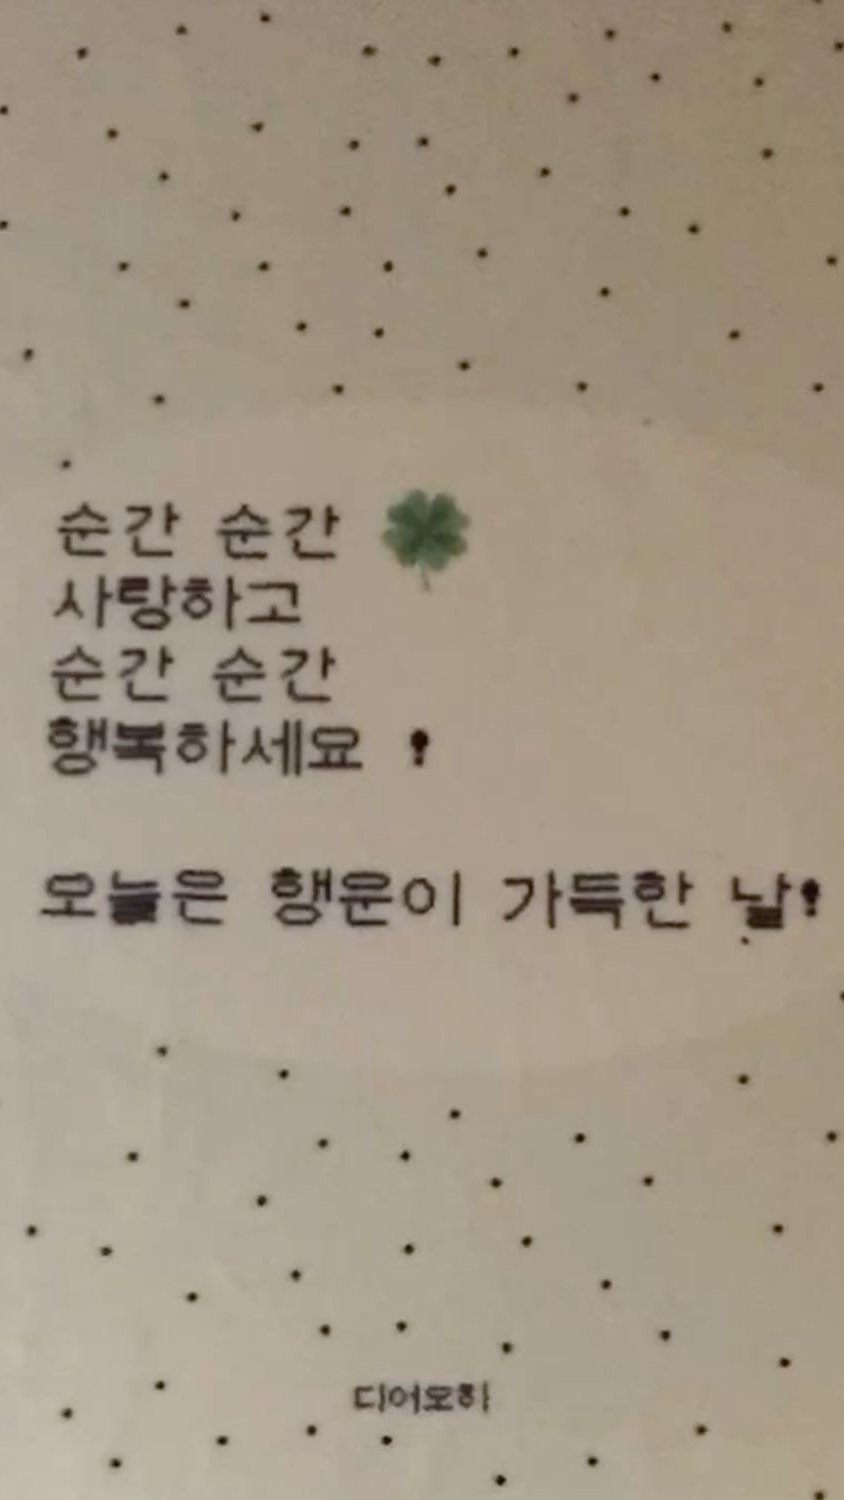 순간 순간
사랑하고
순간 순간
행복하세요 !
오늘은 행운이 가득한 날!
디어모히